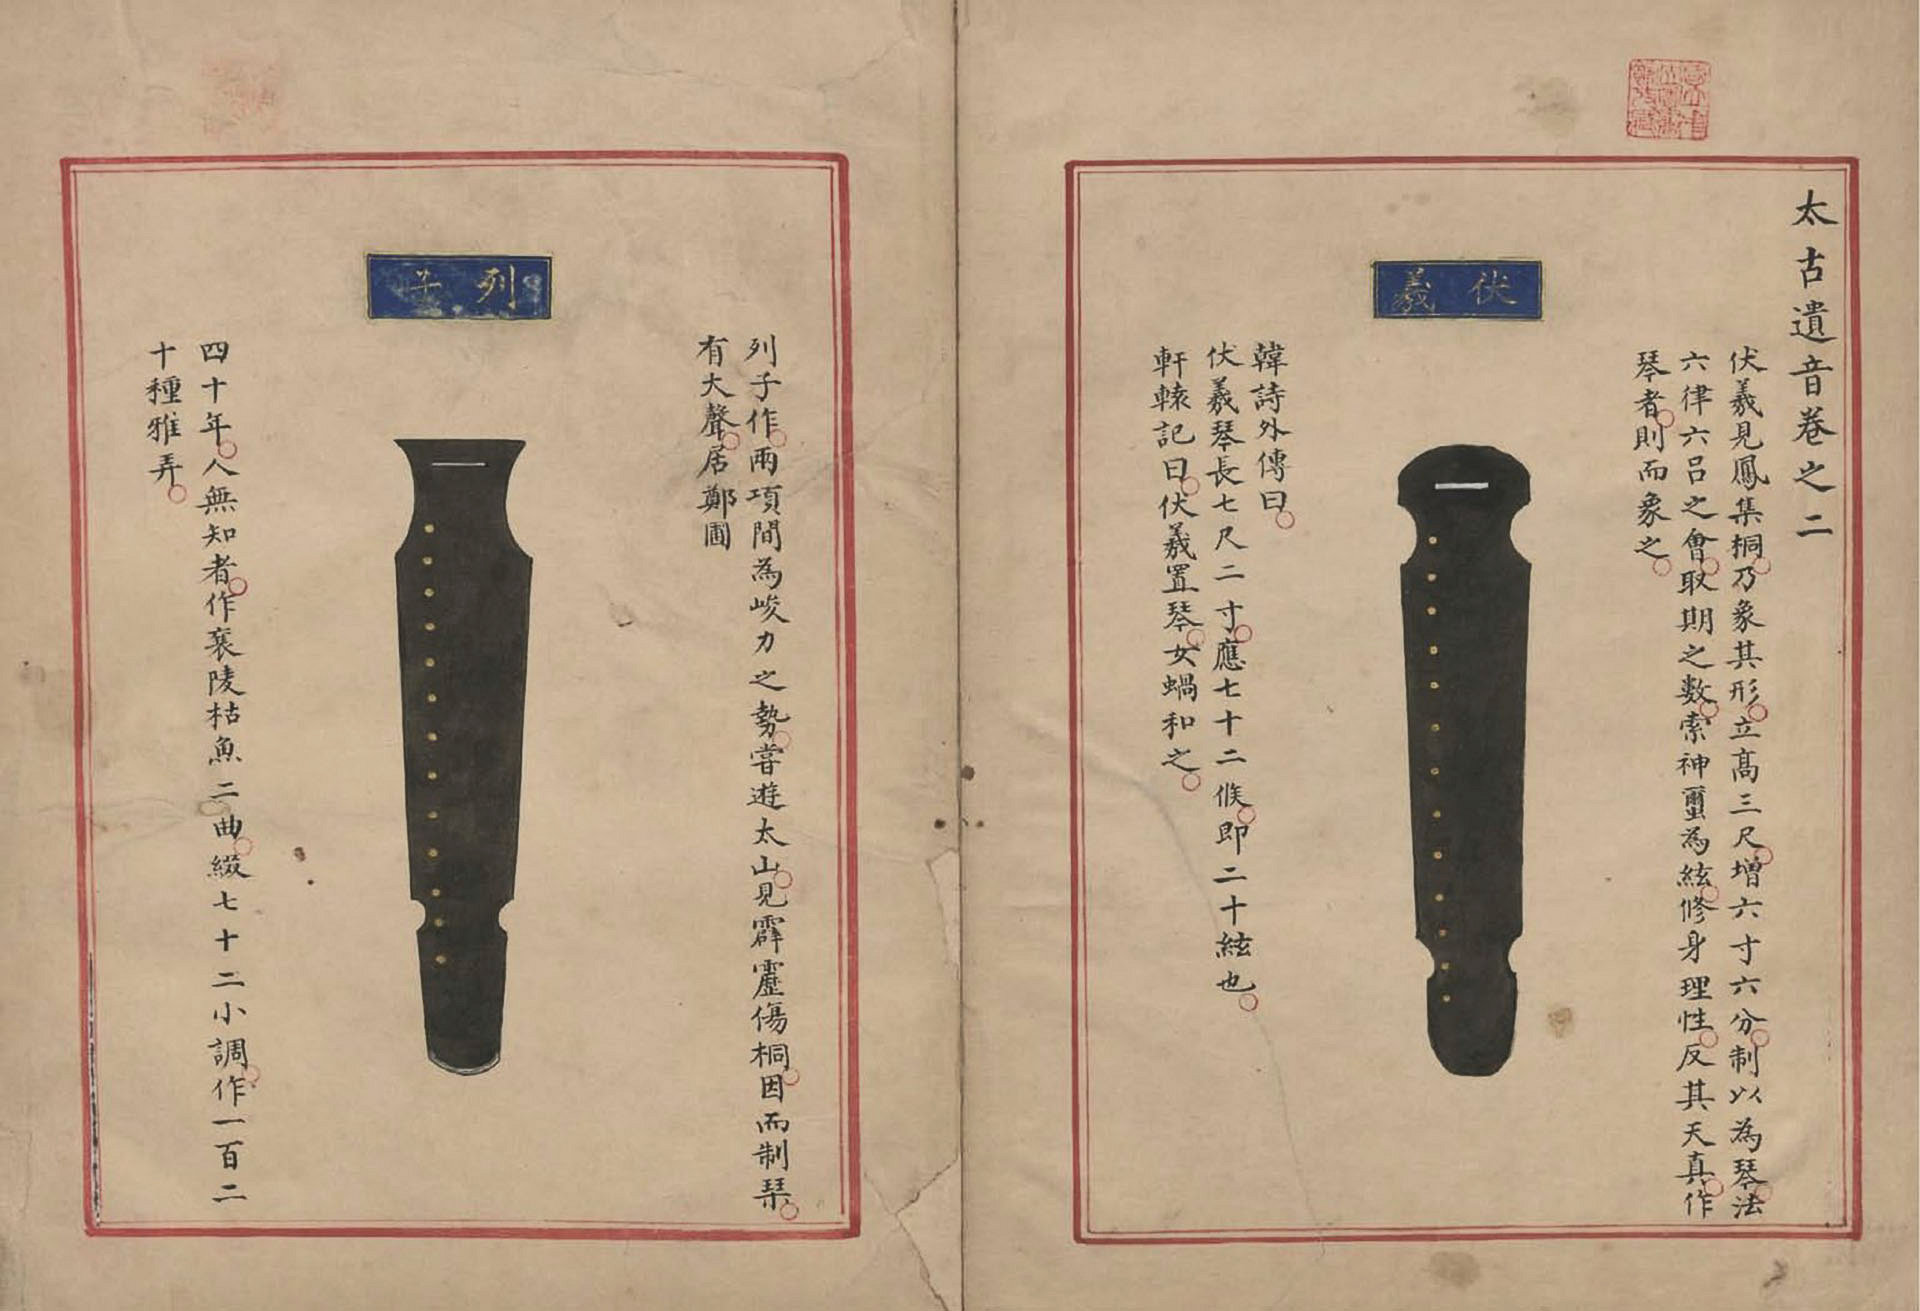 太古遺音卷之二
伏羲
伏羲見鳳集桐乃象其形立高三尺增六寸六分制以為琴法
六律六呂之會取期之數索神蠒為絃修身理性反其天真作
琴者則而象之
韓詩外傳曰
伏羲琴長七尺二寸應七十二候即二十絃也
軒轅記曰伏羲置琴女蝸和之
列子
列子作兩項間為峻力之勢嘗遊太山見霹靂傷桐因而制琹
有大聲居鄭圃
四十年人無知者作襄陵枯魚二曲綴七十二小調作一百二
十種雅弄